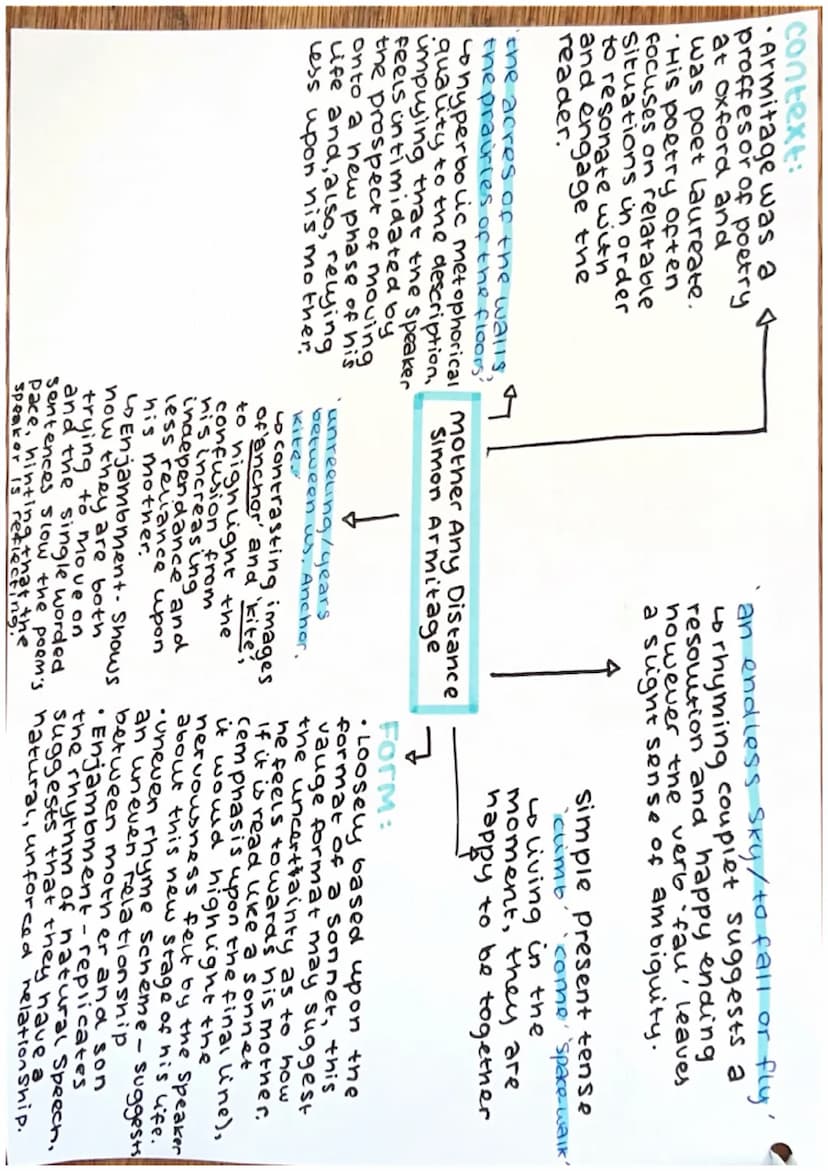 Context:
· Armitage was a
proffesor of poetry
at oxford and
was poet laureate.
· His poetry often
focuses on relatable
situations in order
to resonate with
and engage the
reader.
'the acres of the walls,
the prairies of the floors'
↳ hyperbolic metophorical
quality to the description,
implying that the speaker
feels intimidated by
the prospect of moving
onto a new phase of his
life and, also, relying
less upon his mother.
Mother Any Distance
Simon Armitage
'unreeling/years
between us. Anchor.
Kite.'
↳ contrasting images
of 'anchor' and 'kite',
to highlight the
confusion from
his increasing
independance and
less reliance upon
his mother.
↳ Enjambment - shows
how they are both
trying to move on
and the single worded
sentences slow the poem's
pace, hinting that the
speaker is reflecting.
'an endless sky/to fall or fly'
↳ rhyming couplet suggests a
resolution and happy ending
however the verb 'fall' leaves
a slight sense of ambiguity.
simple present tense
'climb' 'come' 'space-walk'
↳ living in the
moment, they are
happy to be together
Form:
· Loosely based upon the
format of a sonnet, this
vauge format may suggest
the uncerttainty as to how
he feels towards his mother.
If it is read like a sonnet
(emphasis upon the final line),
it would highlight the
nervousness felt by the speaker
about this new stage of his life.
· uneven rhyme scheme - suggests
an uneven relationship
between mother and son
· Enjambment - replicates
the rhythm of natural speech,
suggests that they have a
natural, unforced relationship.